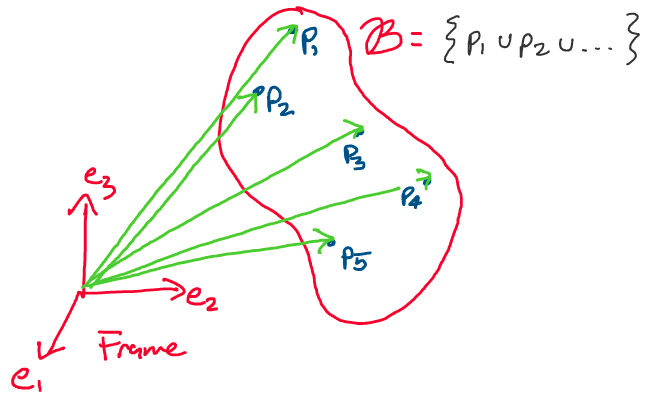 P₁
B = {P₁ ∪ P₂ ∪ ...}
P₂
P₃
P₄
P₅
e₃
e₂
Frame
e₁